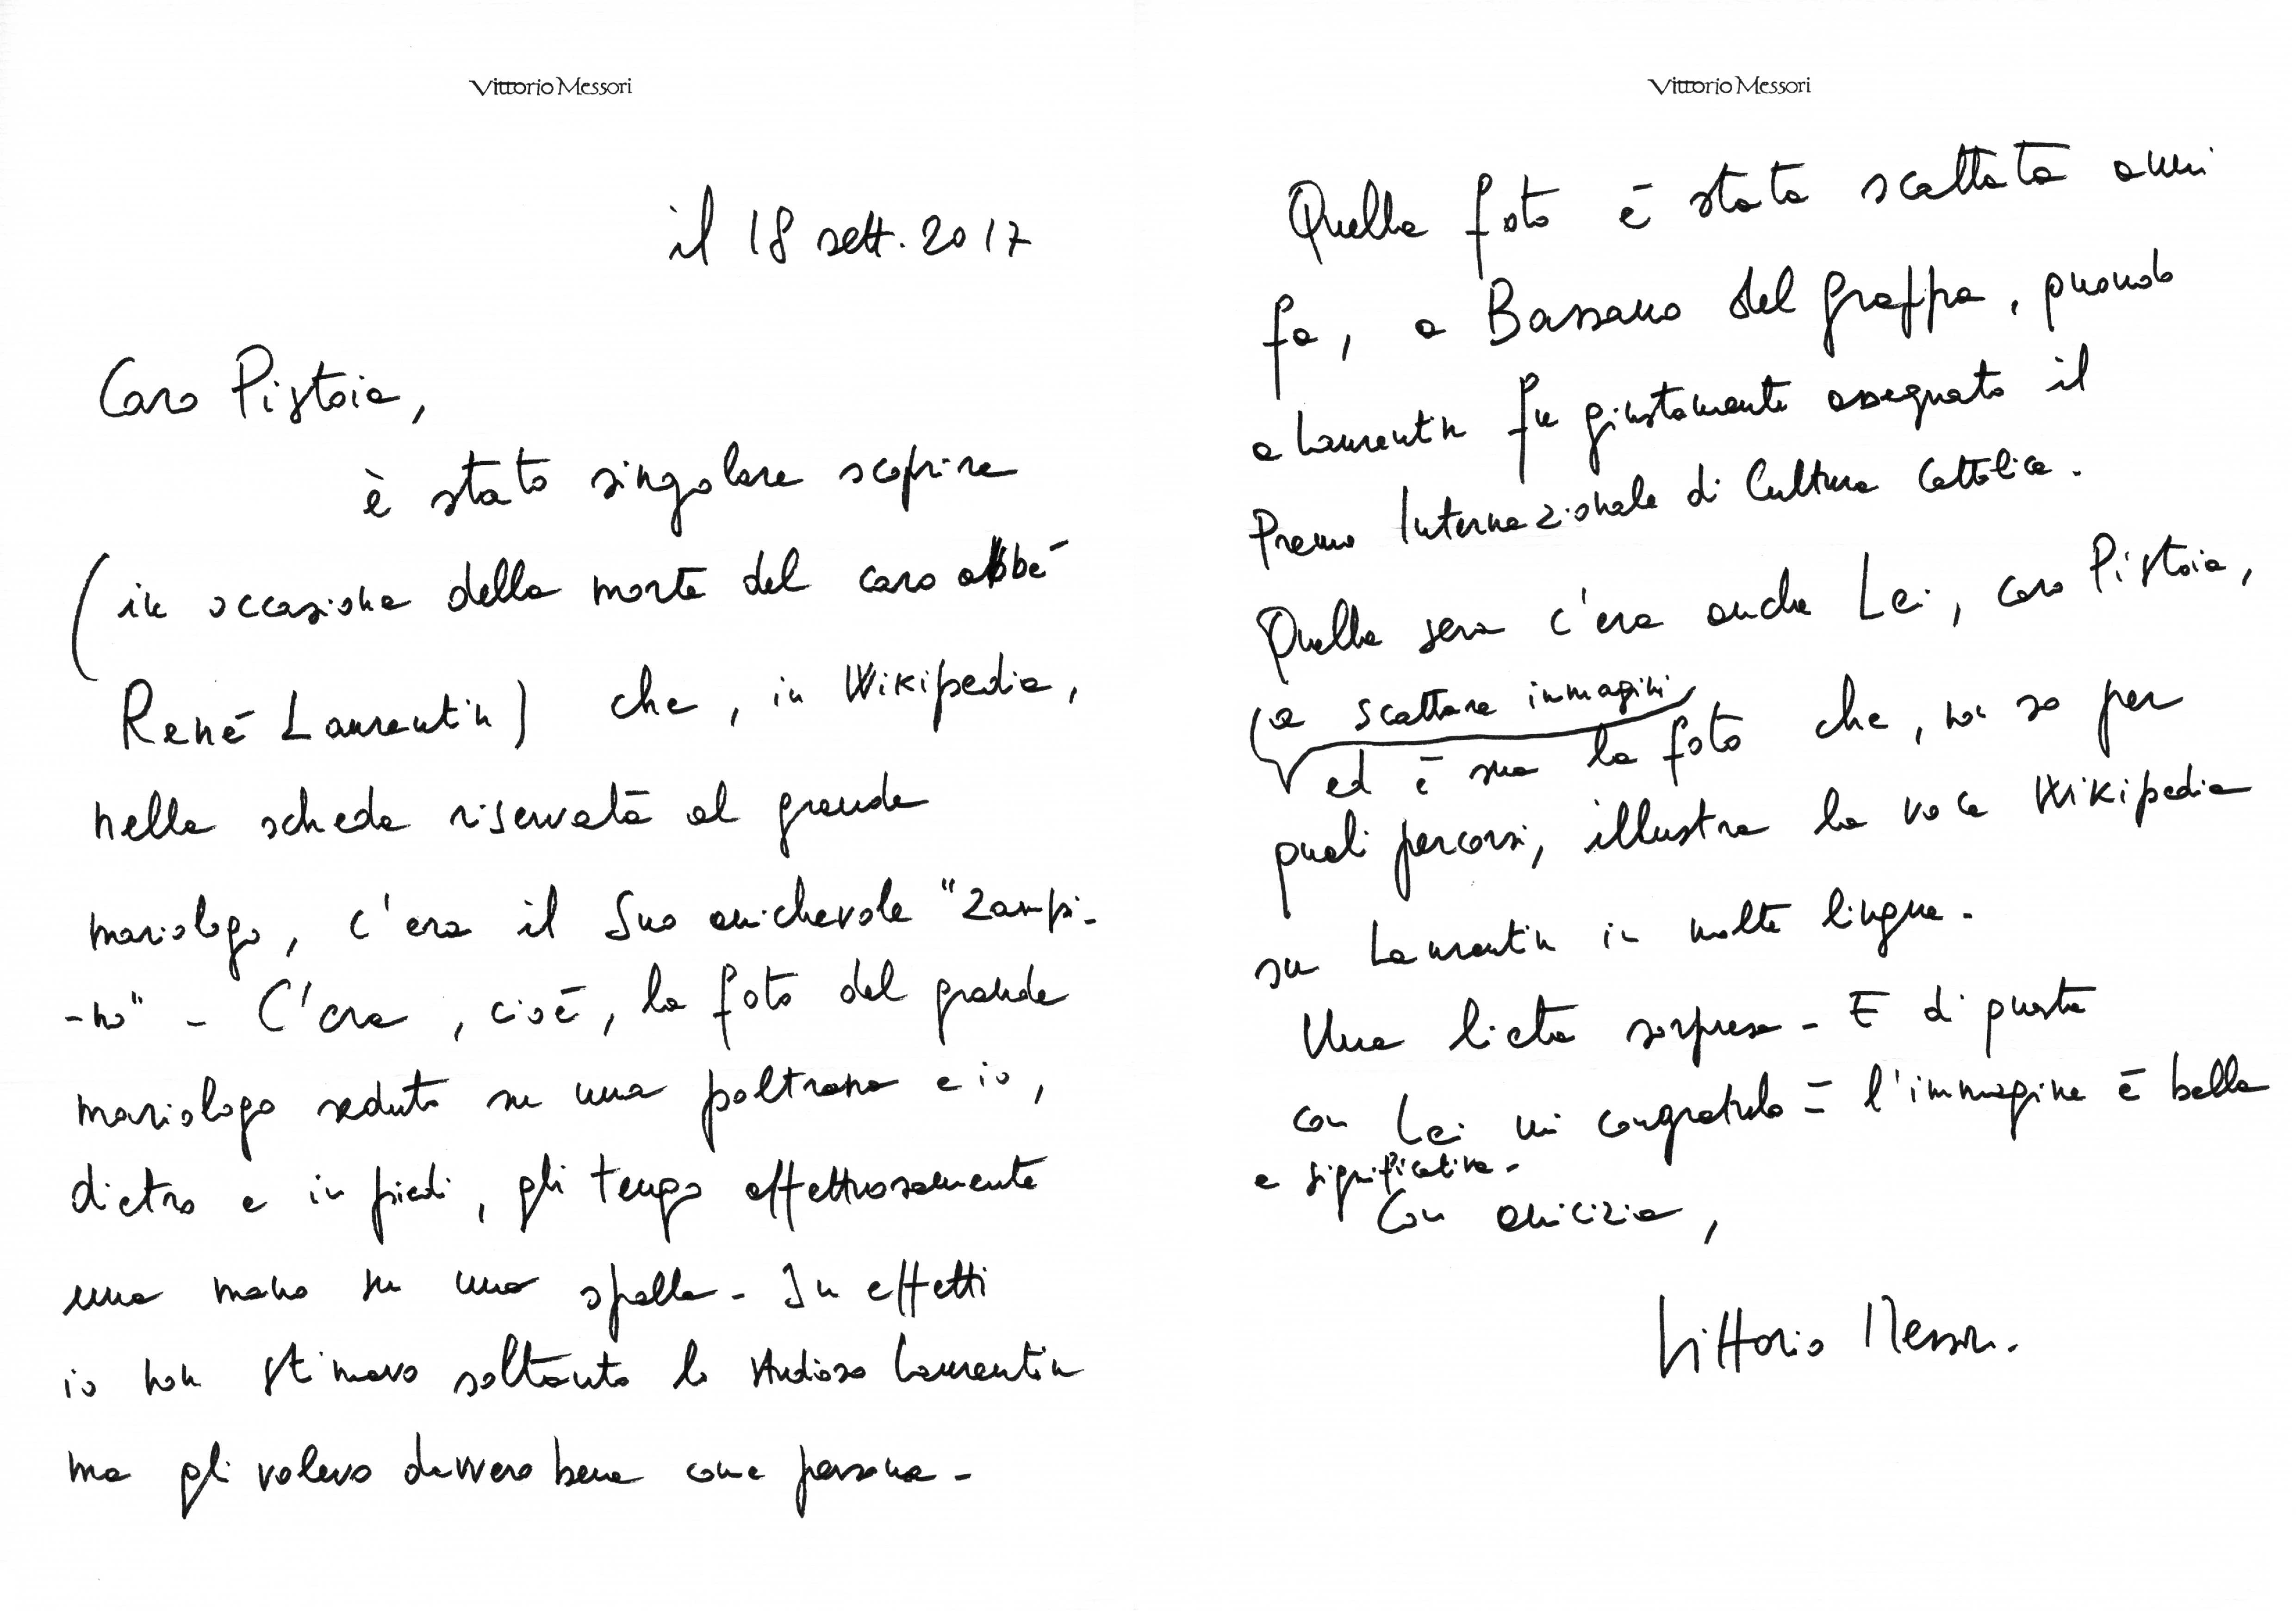 Vittorio Messori
il 18 sett. 2017
Caro Pistoia,
è stato singolare scoprire
(in occasione della morte del caro abbé
René Laurentin) che, in Wikipedia,
nella scheda riservata al grande
mariologo, c'era il Suo amichevole "zampi-
-no" - C'era, cioè, la foto del grande
mariologo seduto su una poltrona e io,
dietro e in piedi, gli tengo affettuosamente
una mano su una spalla - In effetti
io non stimavo soltanto lo studioso Laurentin
ma gli volevo davvero bene come persona -
Vittorio Messori
Quella foto è stata scattata anni
fa, a Bassano del Grappa, quando
a Laurentin fu giustamente assegnato il
Premio Internazionale di Cultura Cattolica.
Quella sera c'era anche Lei, caro Pistoia,
(a scattare immagini
ed è sua la foto che, non so per
quali percorsi, illustra la voce Wikipedia
su Laurentin in molte lingue -
Una lieta sorpresa - E di questa
con Lei mi congratulo = l'immagine è bella
e significativa -
Con amicizia,
Vittorio Messori.